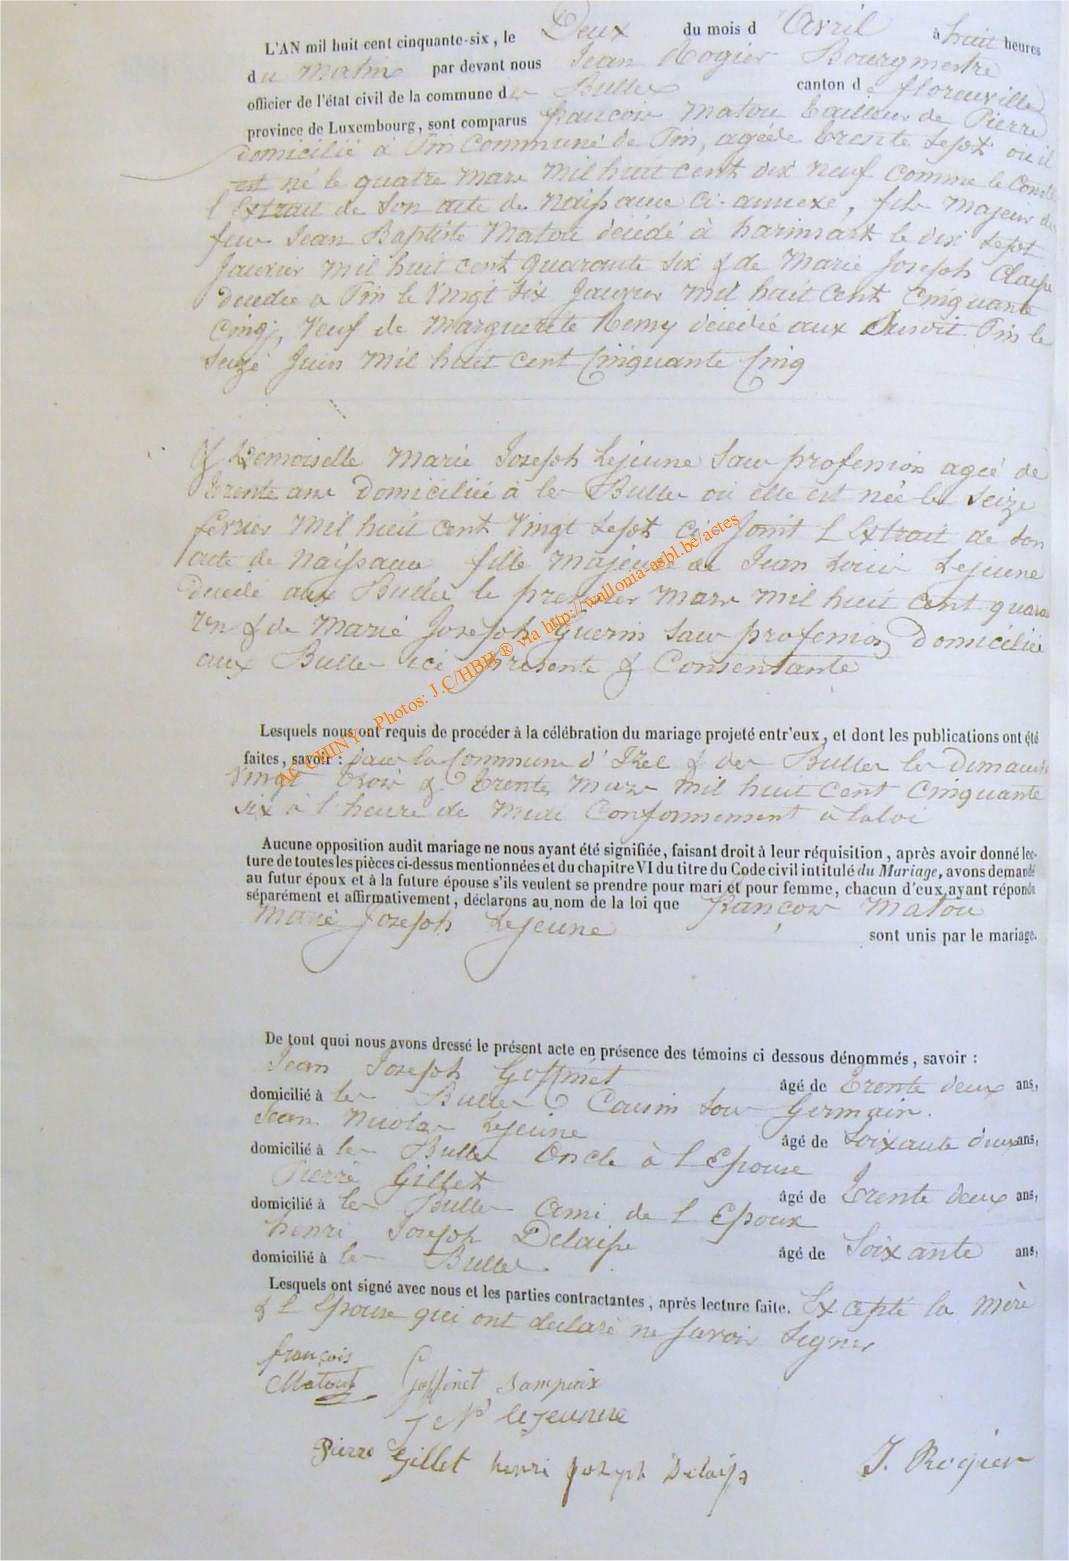 L'AN mil huit cent cinquante-six, le Deux du mois d'Avril à huit heures
du Matin par devant nous Jean Rogier Bourgmestre
officier de l'état civil de la commune des Bulles canton de florenville
province de Luxembourg, sont comparus françois Matou tailleur de Pierre
domicilié à Pin Commune de Pin, agée de trente sept où il
est né le quatre mars mil huit cent dix neuf comme le Constate
l'Extrait de son acte de Naissance ci-annexé, fils majeur de
feu Jean Baptiste Matou décédé à harinsart le dix sept
Janvier mil huit cent quarante six & de Marie Joseph Claisse
décédée a Pin le vingt six Janvier mil huit cent Cinquante
Cinq, veuf de Marguerite Remy décédée aux Susdit Pin le
seize Juin mil huit cent Cinquante Cinq
& Demoiselle Marie Joseph Lejeune Sans profession ageé de
trente ans Domiciliée à les Bulles où elle est née le seize
fevrier mil huit cent vingt sept ci Joint l'Extrait de son
acte de Naissance fille Majeure de Jean Louis Lejeune
décédé aux Bulles le premier Mars mil huit cent quara
un & de Marie Joseph Guerin Sans profession Domiciliée
aux Bulles ici présente & Consentante
Lesquels nous ont requis de procéder à la célébration du mariage projeté entr'eux, et dont les publications ont été
faites, savoir : dans la Commune d'Izel & des Bulles les Dimanche
vingt trois & trente Mars mil huit Cent Cinquante
six à l'heure de Midi Conformément à la loi
Aucune opposition audit mariage ne nous ayant été signifiée, faisant droit à leur réquisition, après avoir donné lec-
ture de toutes les pièces ci-dessus mentionnées et du chapitre VI du titre du Code civil intitulé du Mariage, avons demandé
au futur époux et à la future épouse s'ils veulent se prendre pour mari et pour femme, chacun d'eux ayant répondu
séparément et affirmativement, déclarons au nom de la loi que françois Matou
Marie Joseph Lejeune
sont unis par le mariage.
De tout quoi nous avons dressé le présent acte en présence des témoins ci dessous dénommés, savoir :
Jean Joseph Goffinet âgé de trente deux ans,
domicilié à les Bulles Cousin sous Germain.
Jean Nicolas Lejeune âgé de Soixante deux ans,
domicilié à les Bulles Oncle à l'Epouse
Pierre Gillet âgé de trente deux ans,
domicilié à les Bulles Ami de l'Epoux
henri Joseph Delaisse âgé de Soixante ans,
domicilié à les Bulles.
Lesquels ont signé avec nous et les parties contractantes, après lecture faite. Excepté la mère
& l'Epouse qui ont declaré ne savoir signer
françois
Matout Goffinet
J N lejeunne
Pierre Gillet henri joseph Delaiss J. Rogier
AC CHINY - Photos: J.C/HBH ® via http://walloma-asbl.be/actes